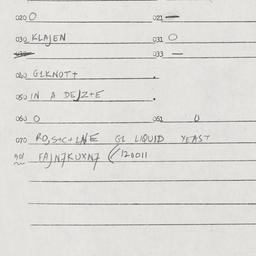 020 O 021 —
030 KLAJEN 031 O
033 —
040 G1KNOTT .
050 IN A DEJZ+E .
060 O 061 O
070 RO,S+C+INE G1 LIQUID YEAST
90/ FAJN7KUXN7 (120011